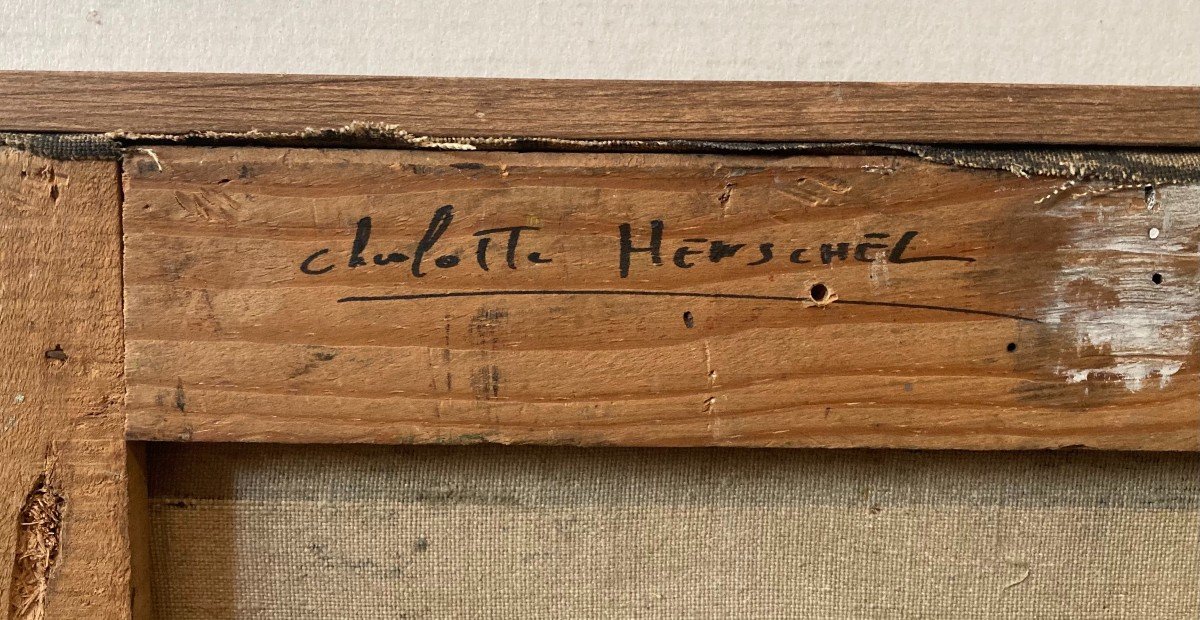 charlotte HENSCHEL